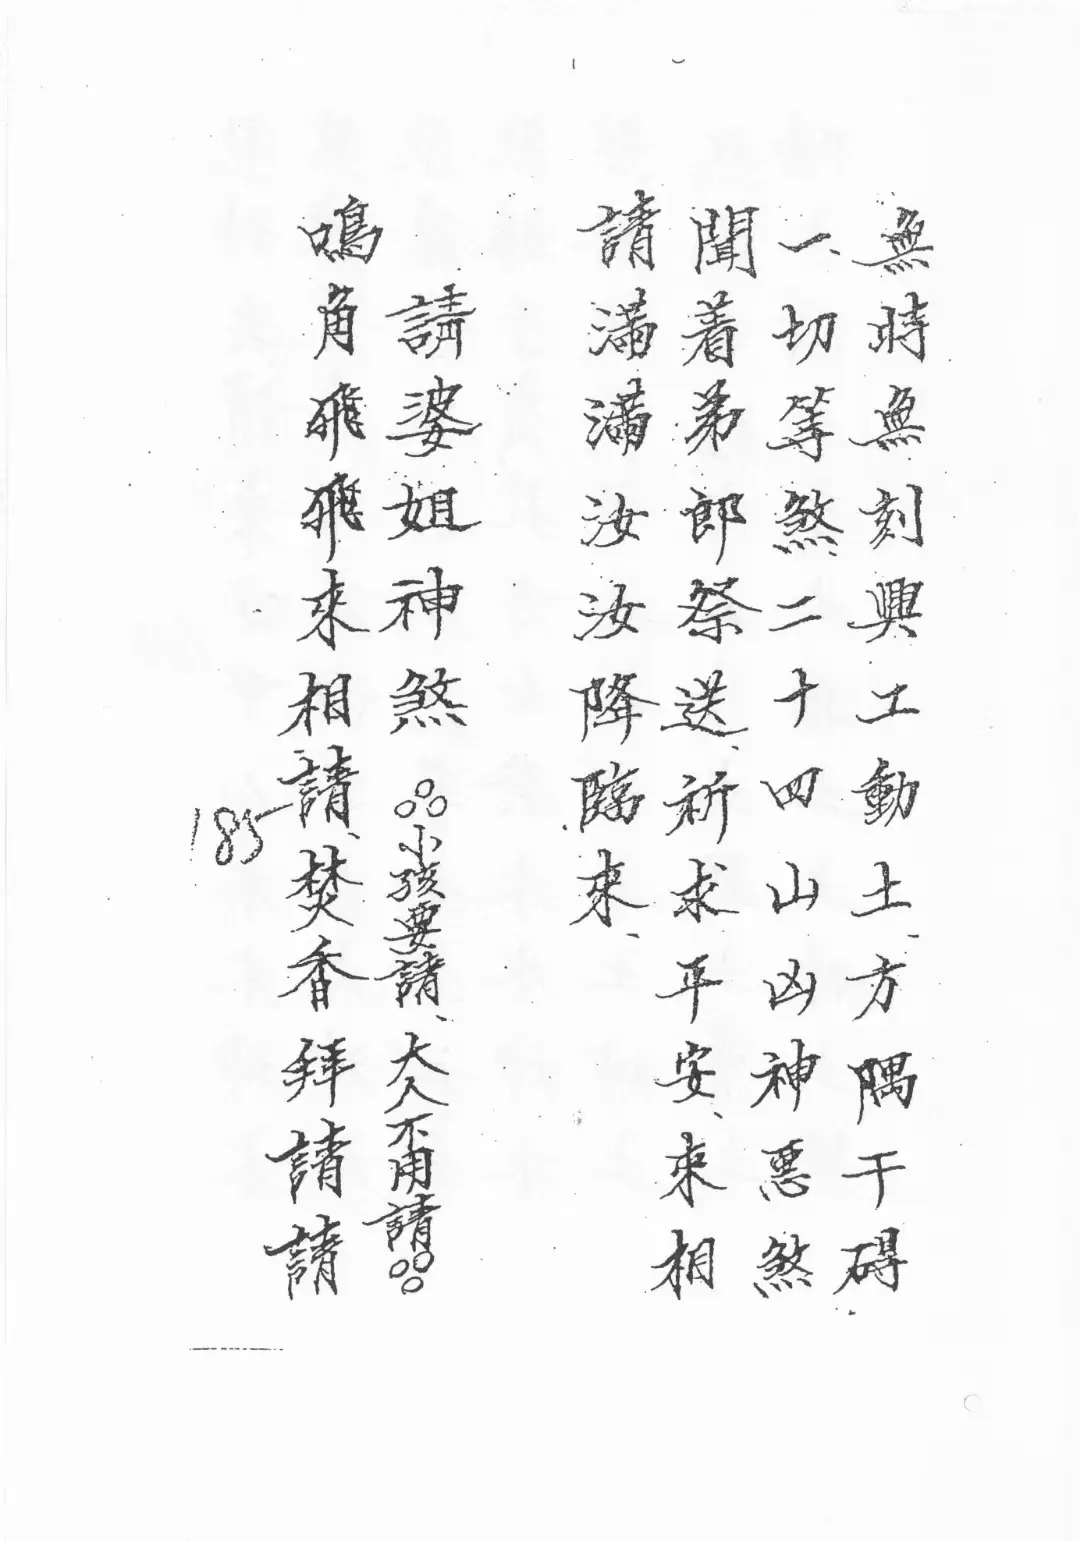 無時無刻興工動土、方隅干碍
一切等煞二十四山凶神惡煞
聞着弟郎祭送、祈求平安、來相
請滿滿汝汝降臨來、
請婆姐神煞 ஃ小孩要請、大人不用請ஃ
鳴角飛飛來相請、焚香拜請請
185